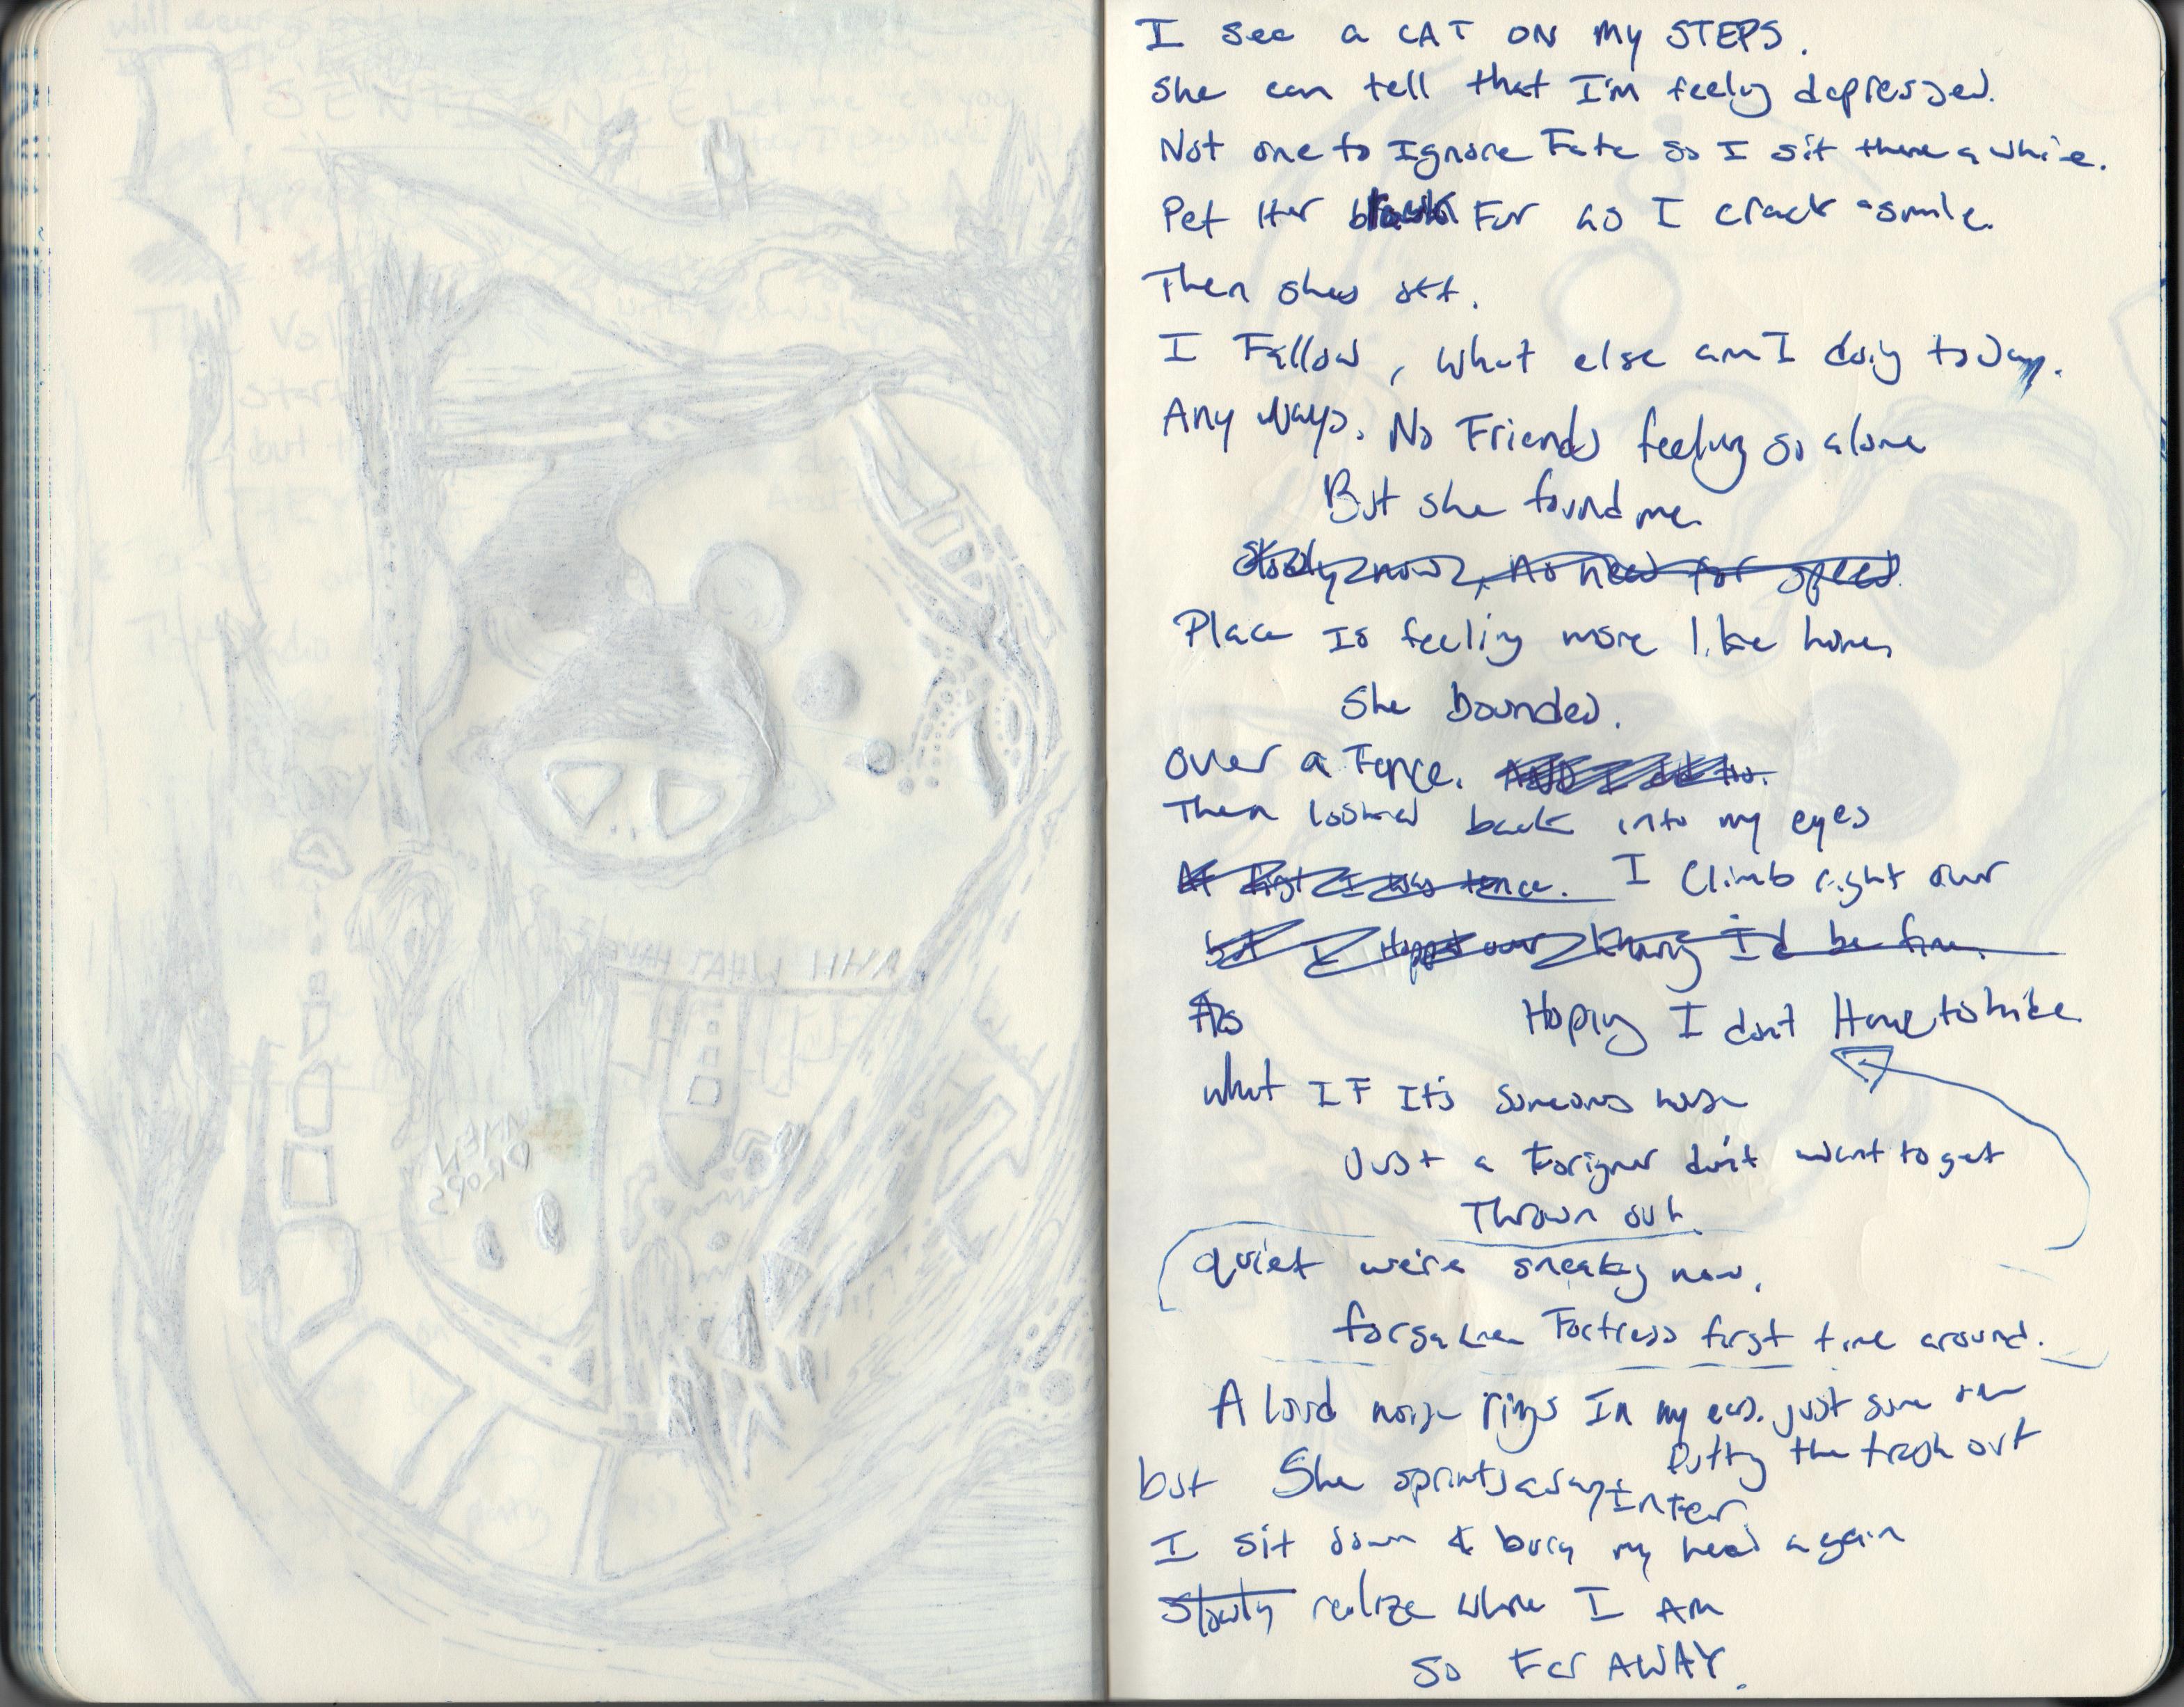 AHH WHAT HAVE
OPEN
DROPS
I see a CAT ON MY STEPS.
She can tell that I'm feeling depressed.
Not one to Ignore Fate so I sit there a while.
Pet Her black Fur as I crack a smile.
Then shes off.
I Follow, what else am I doing today.
Any ways. No Friends feeling so alone
But she found me.
Slowly now, no need for speed.
Place Is feeling more like home,
She bounded.
over a Fence. AND I did too.
Then looked back into my eyes
At first I was tence. I climb right over
but I Hopped over knowing I'd be fine.
As Hoping I dont Have to hide.
what IF It's someones house
Just a Forigner don't want to get
Thrown out.
quiet we're sneaky now,
forsaken Fortress first time around.
A loud noise rings In my ears. just some
Putting the trash out
but She sprints away
I sit down & bury my head again
Slowly realize where I am
so Far AWAY.